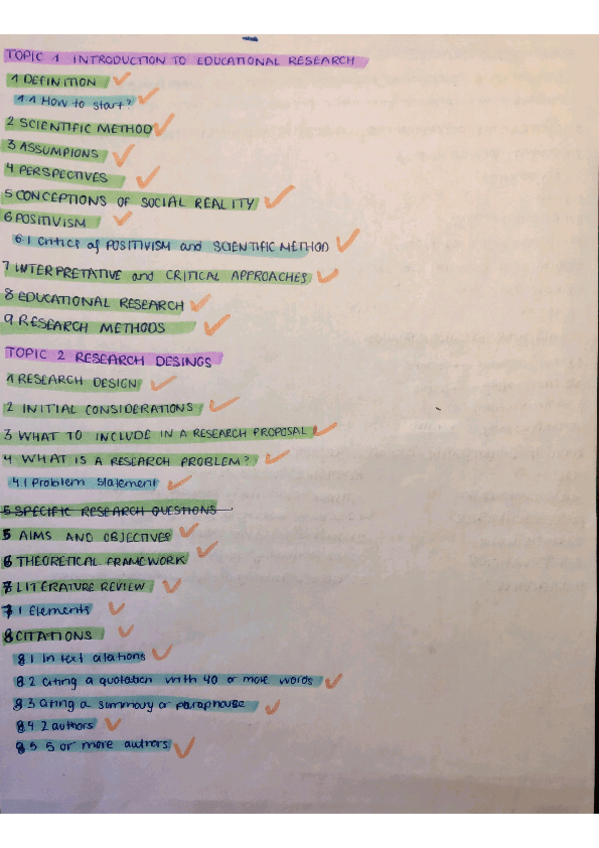 TOPIC 1 INTRODUCTION TO EDUCATIONAL RESEARCH
1 DEFINITION
1.1 How to start?
2 SCIENTIFIC METHOD
3 ASSUMPIONS
4 PERSPECTIVES
5 CONCEPTIONS OF SOCIAL REALITY
6 POSITIVISM
6.1 Critics of POSITIVISM and SCIENTIFIC METHOD
7 INTERPRETATIVE and CRITICAL APPROACHES
8 EDUCATIONAL RESEARCH
9 RESEARCH METHODS
TOPIC 2 RESEARCH DESINGS
1 RESEARCH DESIGN
2 INITIAL CONSIDERATIONS
3 WHAT TO INCLUDE IN A RESEARCH PROPOSAL
4 WHAT IS A RESEARCH PROBLEM?
4.1 Problem statement
5 SPECIFIC RESEARCH QUESTIONS
5 AIMS AND OBJECTIVES
6 THEORETICAL FRAMEWORK
7 LITERATURE REVIEW
7.1 Elements
8 CITATIONS
8.1 In text citations
8.2 Citing a quotation with 40 or more words
8.3 Citing a summary or paraphrase
8.4 2 authors
8.5 5 or more authors